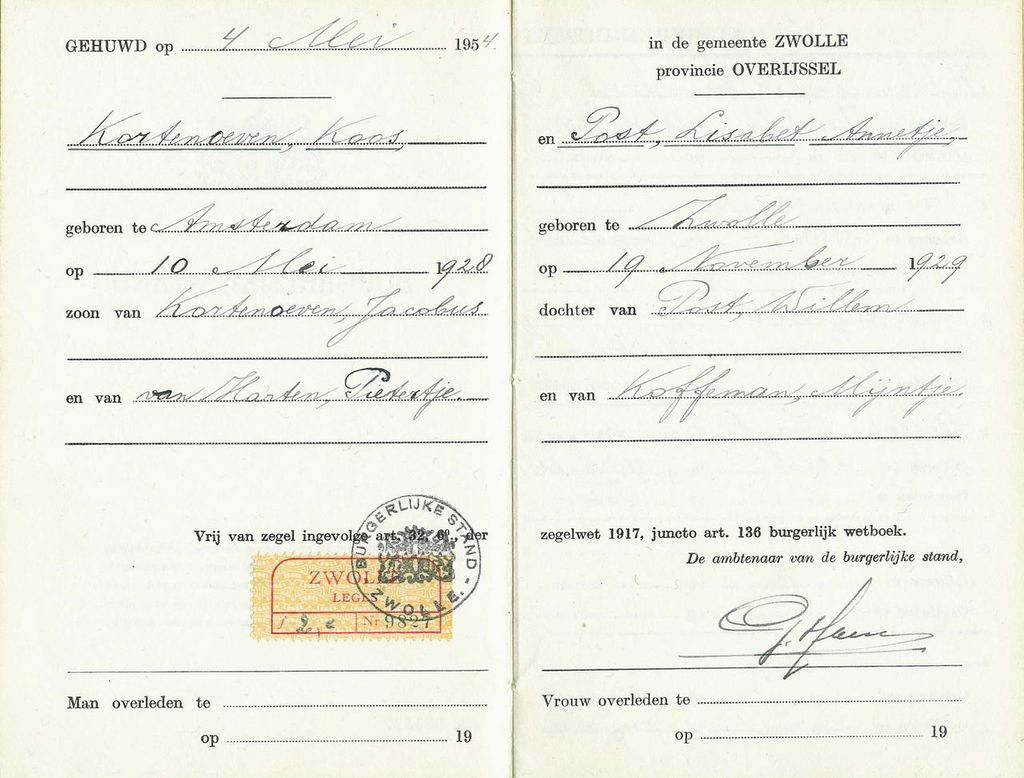 GEHUWD op 4 Mei 1954.
Kortenoeven, Koos,
geboren te Amsterdam
op 10 Mei 1928
zoon van Kortenoeven, Jacobus
en van van Harten, Pietertje.
Vrij van zegel ingevolge art. 32, 6º., der
BURGERLIJKE STAND
- ZWOLLE. -
ZWOLLE
LEGES
Nr 9827
Man overleden te
op 19
in de gemeente ZWOLLE
provincie OVERIJSSEL
en Post, Lisabet Annetje,
geboren te Zwolle
op 19 November 1929
dochter van Post, Willem
en van Koffeman, Mijntje.
zegelwet 1917, juncto art. 136 burgerlijk wetboek.
De ambtenaar van de burgerlijke stand,
Vrouw overleden te
op 19